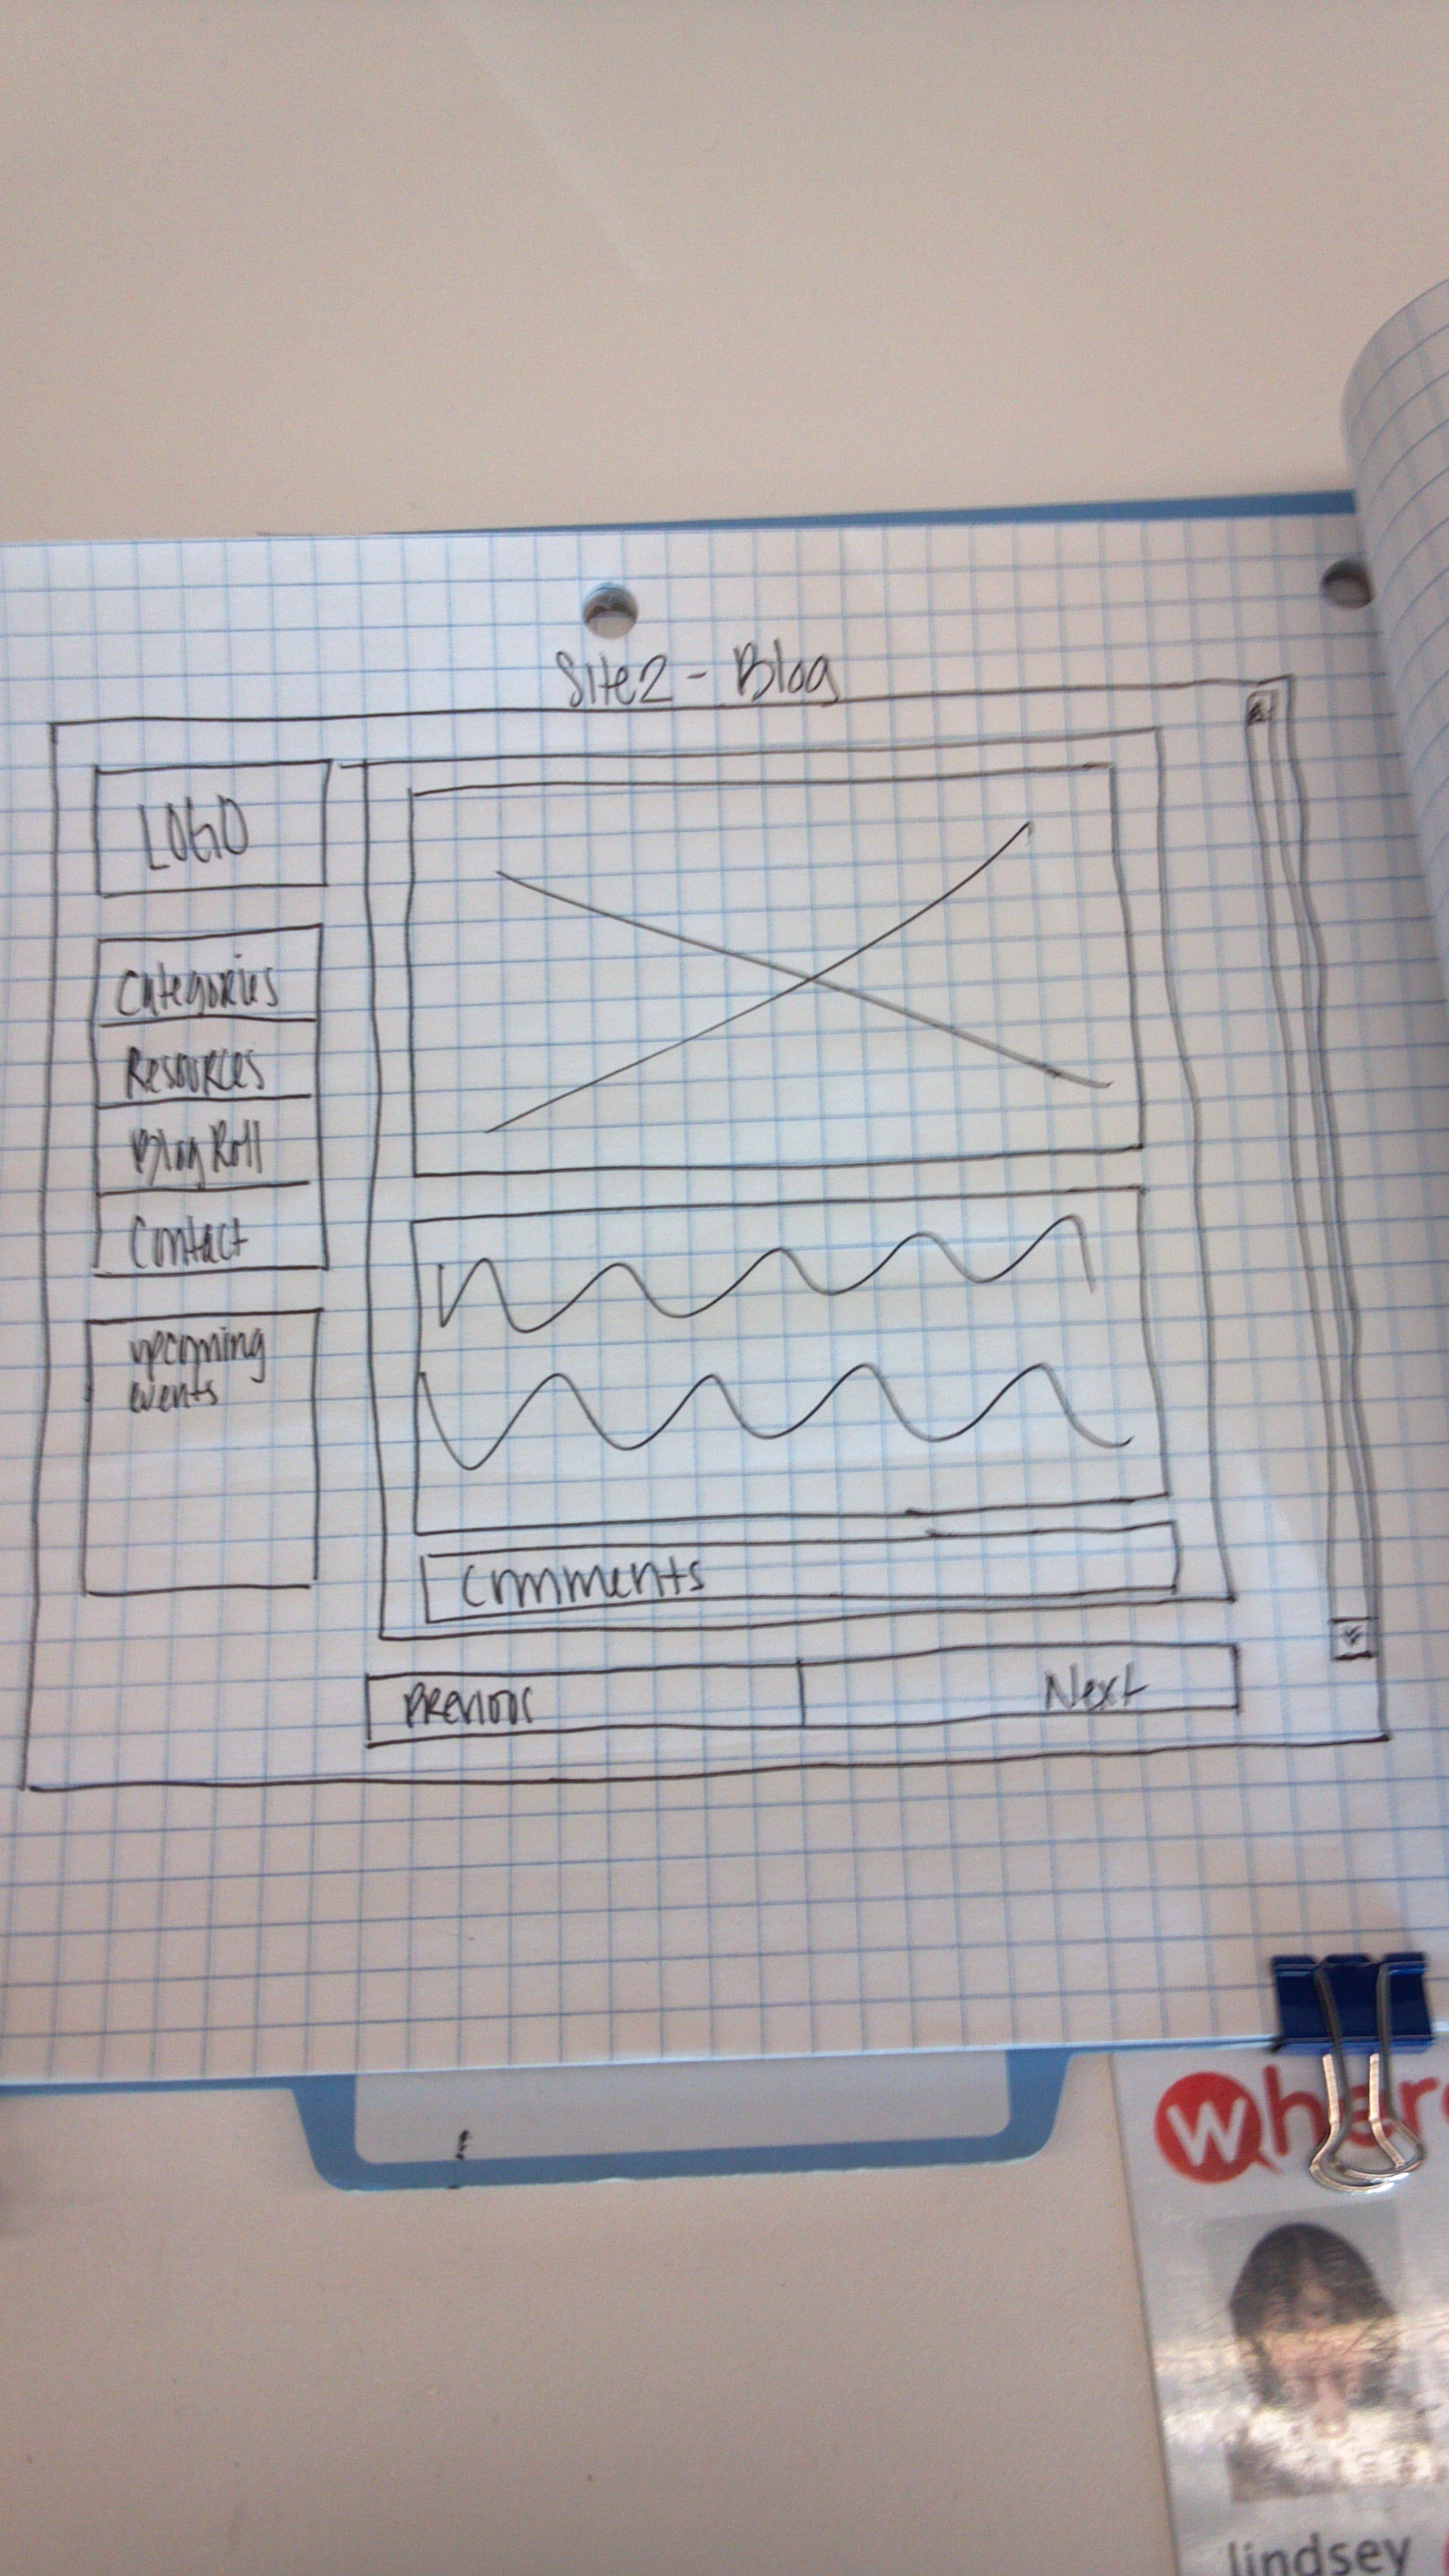 Site2 - Blog
LOGO
Categories
Resources
Blog Roll
Contact
upcoming
events
comments
Previous
Next
lindsey